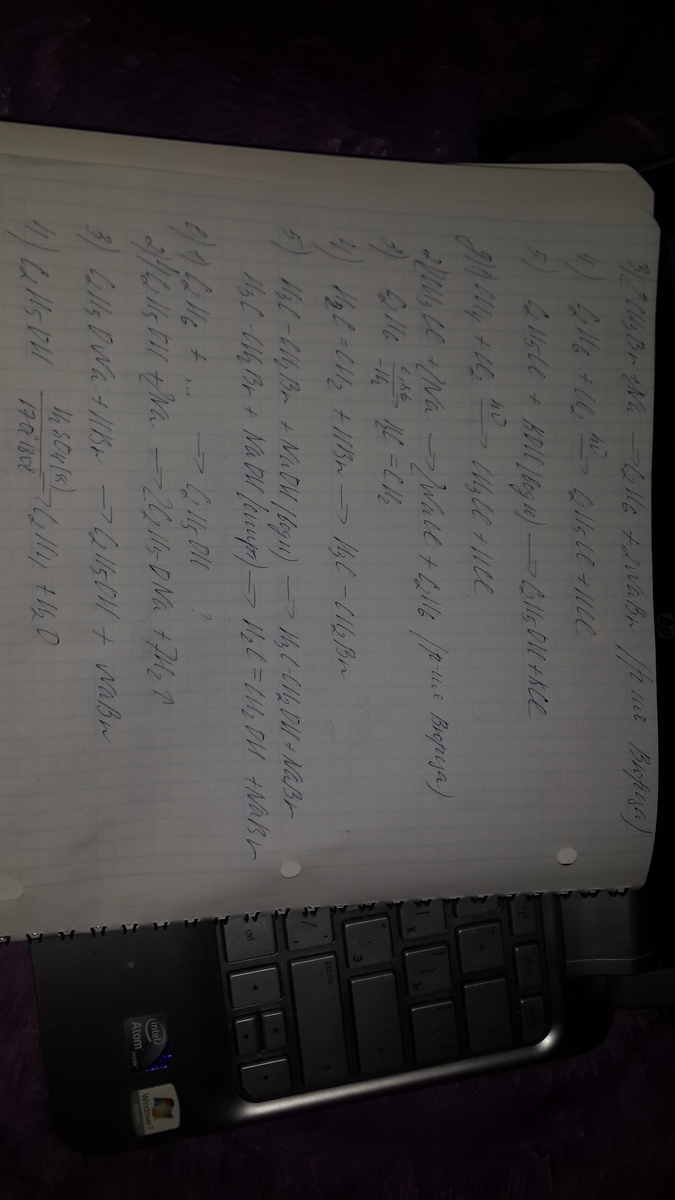 3) 2CH3Br + 2Na → C2H6 + 2NaBr (р-ие Вюрца)
4) C2H6 + Cl2 hν→ C2H5Cl + HCl
5) C2H5Cl + KOH (водн) → C2H5OH + KCl
g) 1) CH4 + Cl2 hν→ CH3Cl + HCl
2) 2CH3Cl + 2Na → 2NaCl + C2H6 (р-ие Вюрца)
3) C2H6 → -H2 H2C = CH2
4) H2C = CH2 + HBr → H3C - CH2Br
5) H3C - CH2Br + NaOH (водн) → H3C - CH2OH + NaBr
H3C - CH2Br + NaOH (спирт) → H2C = CH2OH + NaBr
e) 1) C2H6 + ... → C2H5OH ?
2) 2C2H5OH + 2Na → 2C2H5ONa + H2↑
3) C2H5ONa + HBr → C2H5OH + NaBr
4) C2H5OH H2SO4(к) → C2H4 + H2O
ctrl
pause
З
Х
Ъ
intel
Atom
Windows 7
hp